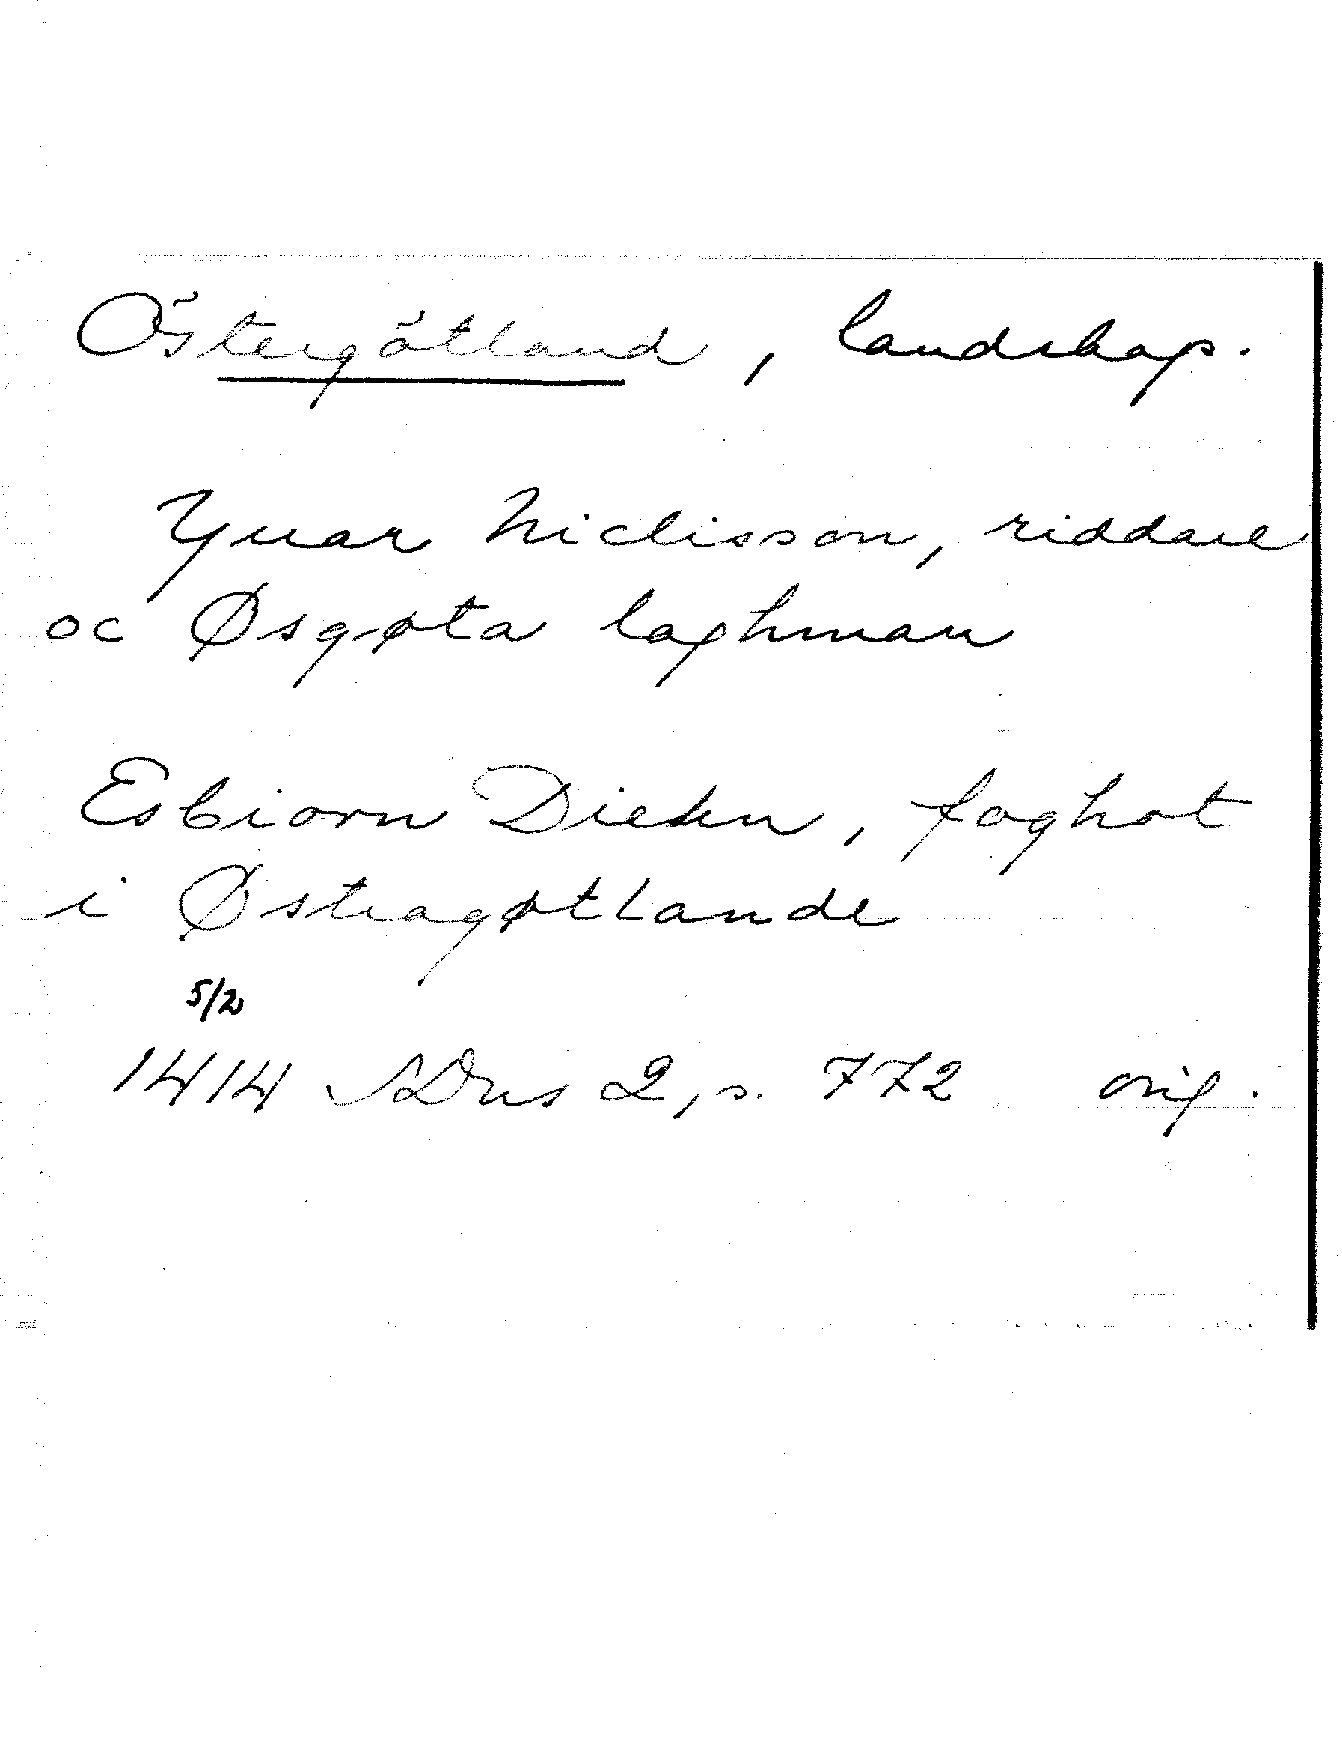 Östergötland, landskap.
Yuar Niclisson, riddare
oc Øsgøta laghman
Esbiorn Diekn, foghot
i Østragøtlande
5/2
1414 SDns 2, s. 772 orig.